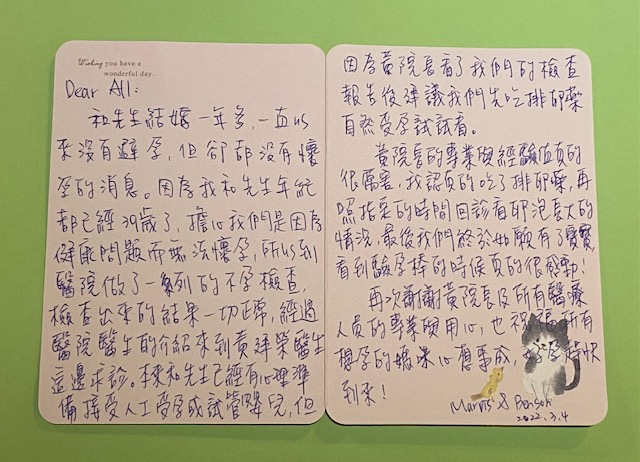 Wishing you have a
wonderful day.
Dear All:
和先生結婚一年多,一直以
來沒有避孕,但卻都沒有懷
孕的消息。因為我和先生年紀
都已經39歲了,擔心我們是因為
健康問題而無法懷孕,所以到
醫院做了一系列的不孕檢查,
檢查出來的結果一切正常,經過
醫院醫生的介紹來到黃建榮醫生
這邊求診。本來和先生已經有心理準
備接受人工受孕或試管嬰兒,但
因為黃院長看了我們的檢查
報告後建議我們先吃排卵藥
自然受孕試試看。
黃院長的專業與經驗值真的
很厲害,我認真的吃了排卵藥,再
照指定的時間回診看卵泡長大的
情況,最後我們終於如願有了寶寶,
看到驗孕棒的時候真的很感動!
再次謝謝黃院長及所有醫療
人員的專業與用心,也祝福所有
想孕的媽咪心想事成,好孕趕快
到來!
Marvis & Benson
2022.3.4